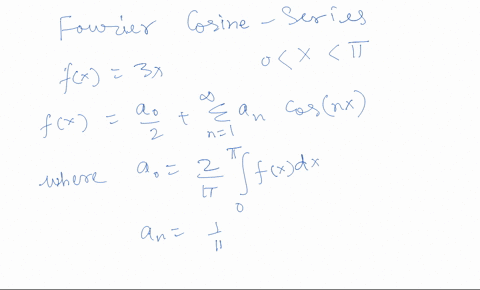 Fourier Cosine-Series
f(x) = 3x 0 < x < π
f(x) = a₀/2 + ∑_{n=1}^{∞} aₙ cos(nx)
where a₀ = 2/π ∫_0^π f(x)dx
aₙ = 1/π